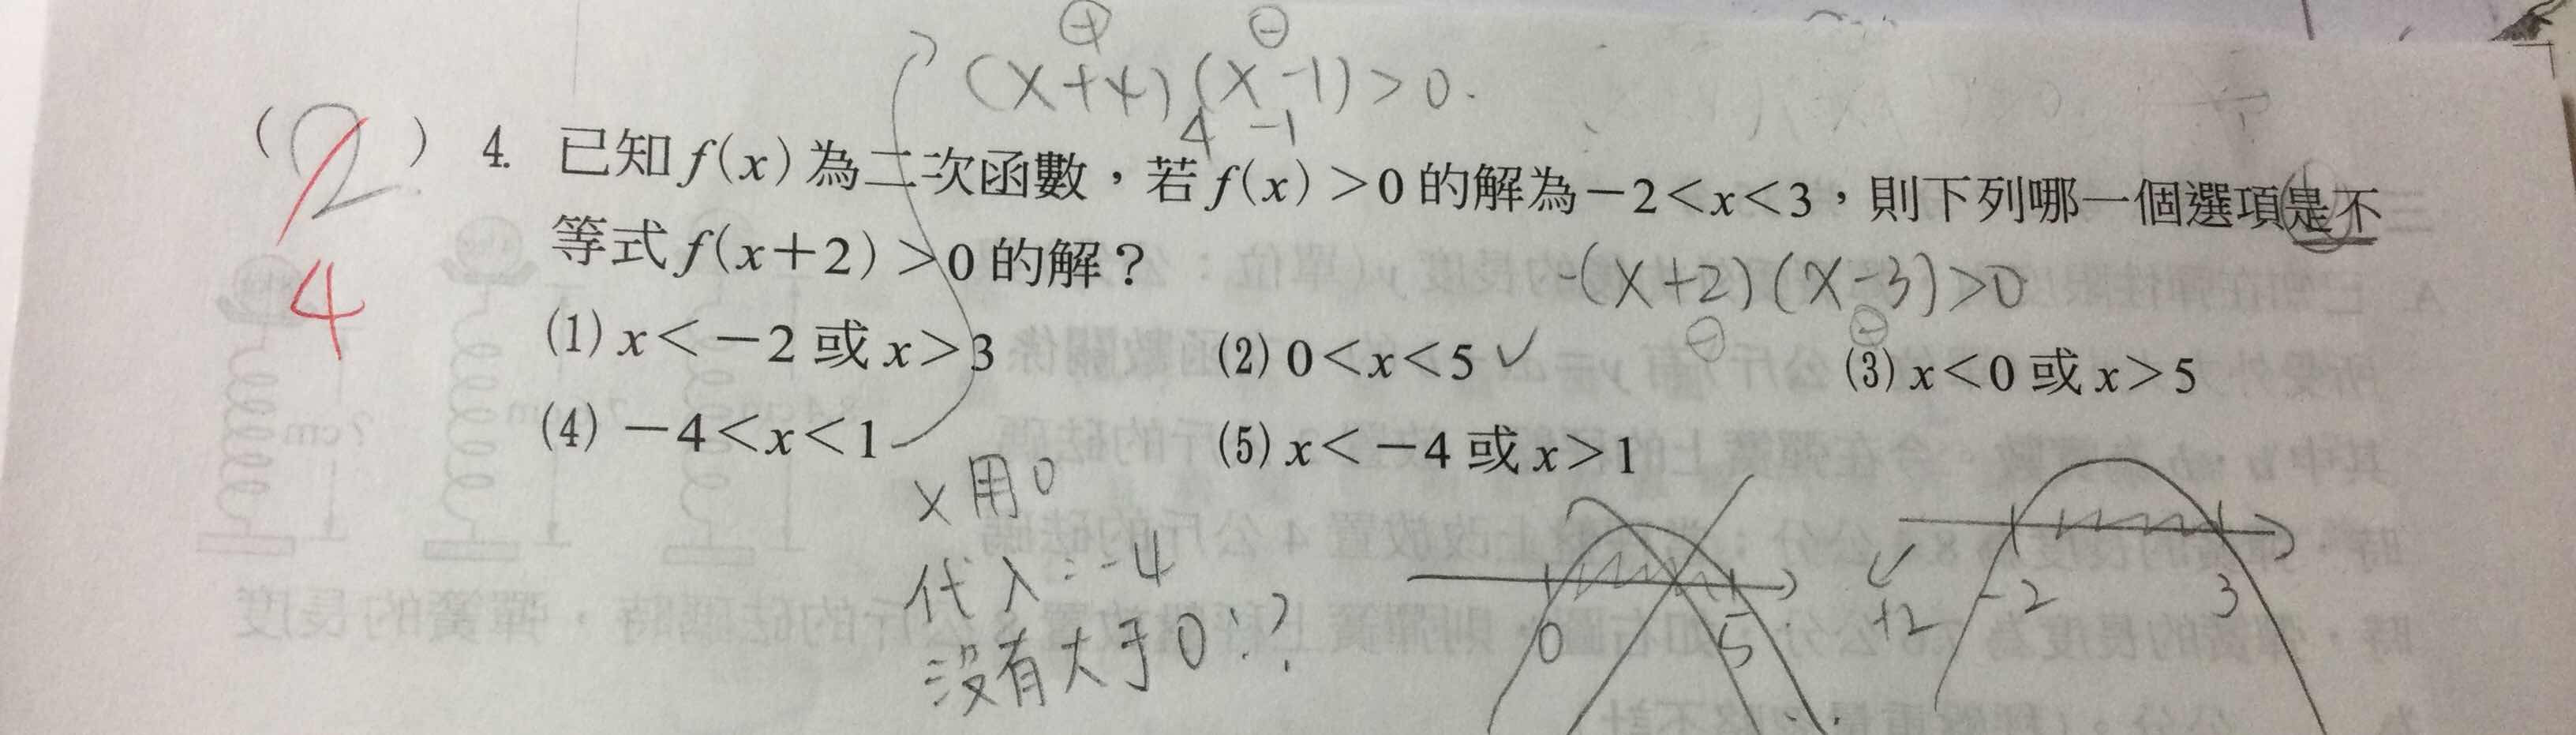 (x+4)(x-1)>0.
4 -1
(2) 4. 已知f(x)為二次函數，若f(x)>0的解為-2<x<3，則下列哪一個選項是不
4 等式f(x+2)>0的解？
-(x+2)(x-3)>0
(1) x<-2或x>3 (2) 0<x<5 ✓ (3) x<0或x>5
(4) -4<x<1 (5) x<-4或x>1
x用0
代入=-4
沒有大于0!?
0 5
+2
-2 3